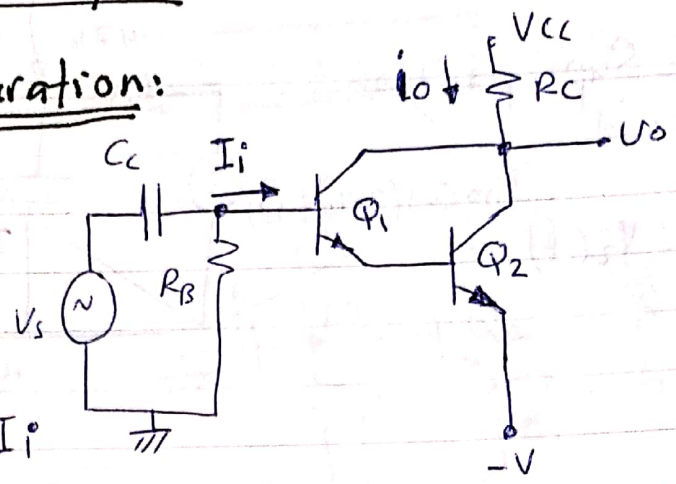 ration:
VCC
io
RC
Cc
Ii
Vo
Q1
Q2
RB
Vs
~
Ii
-V